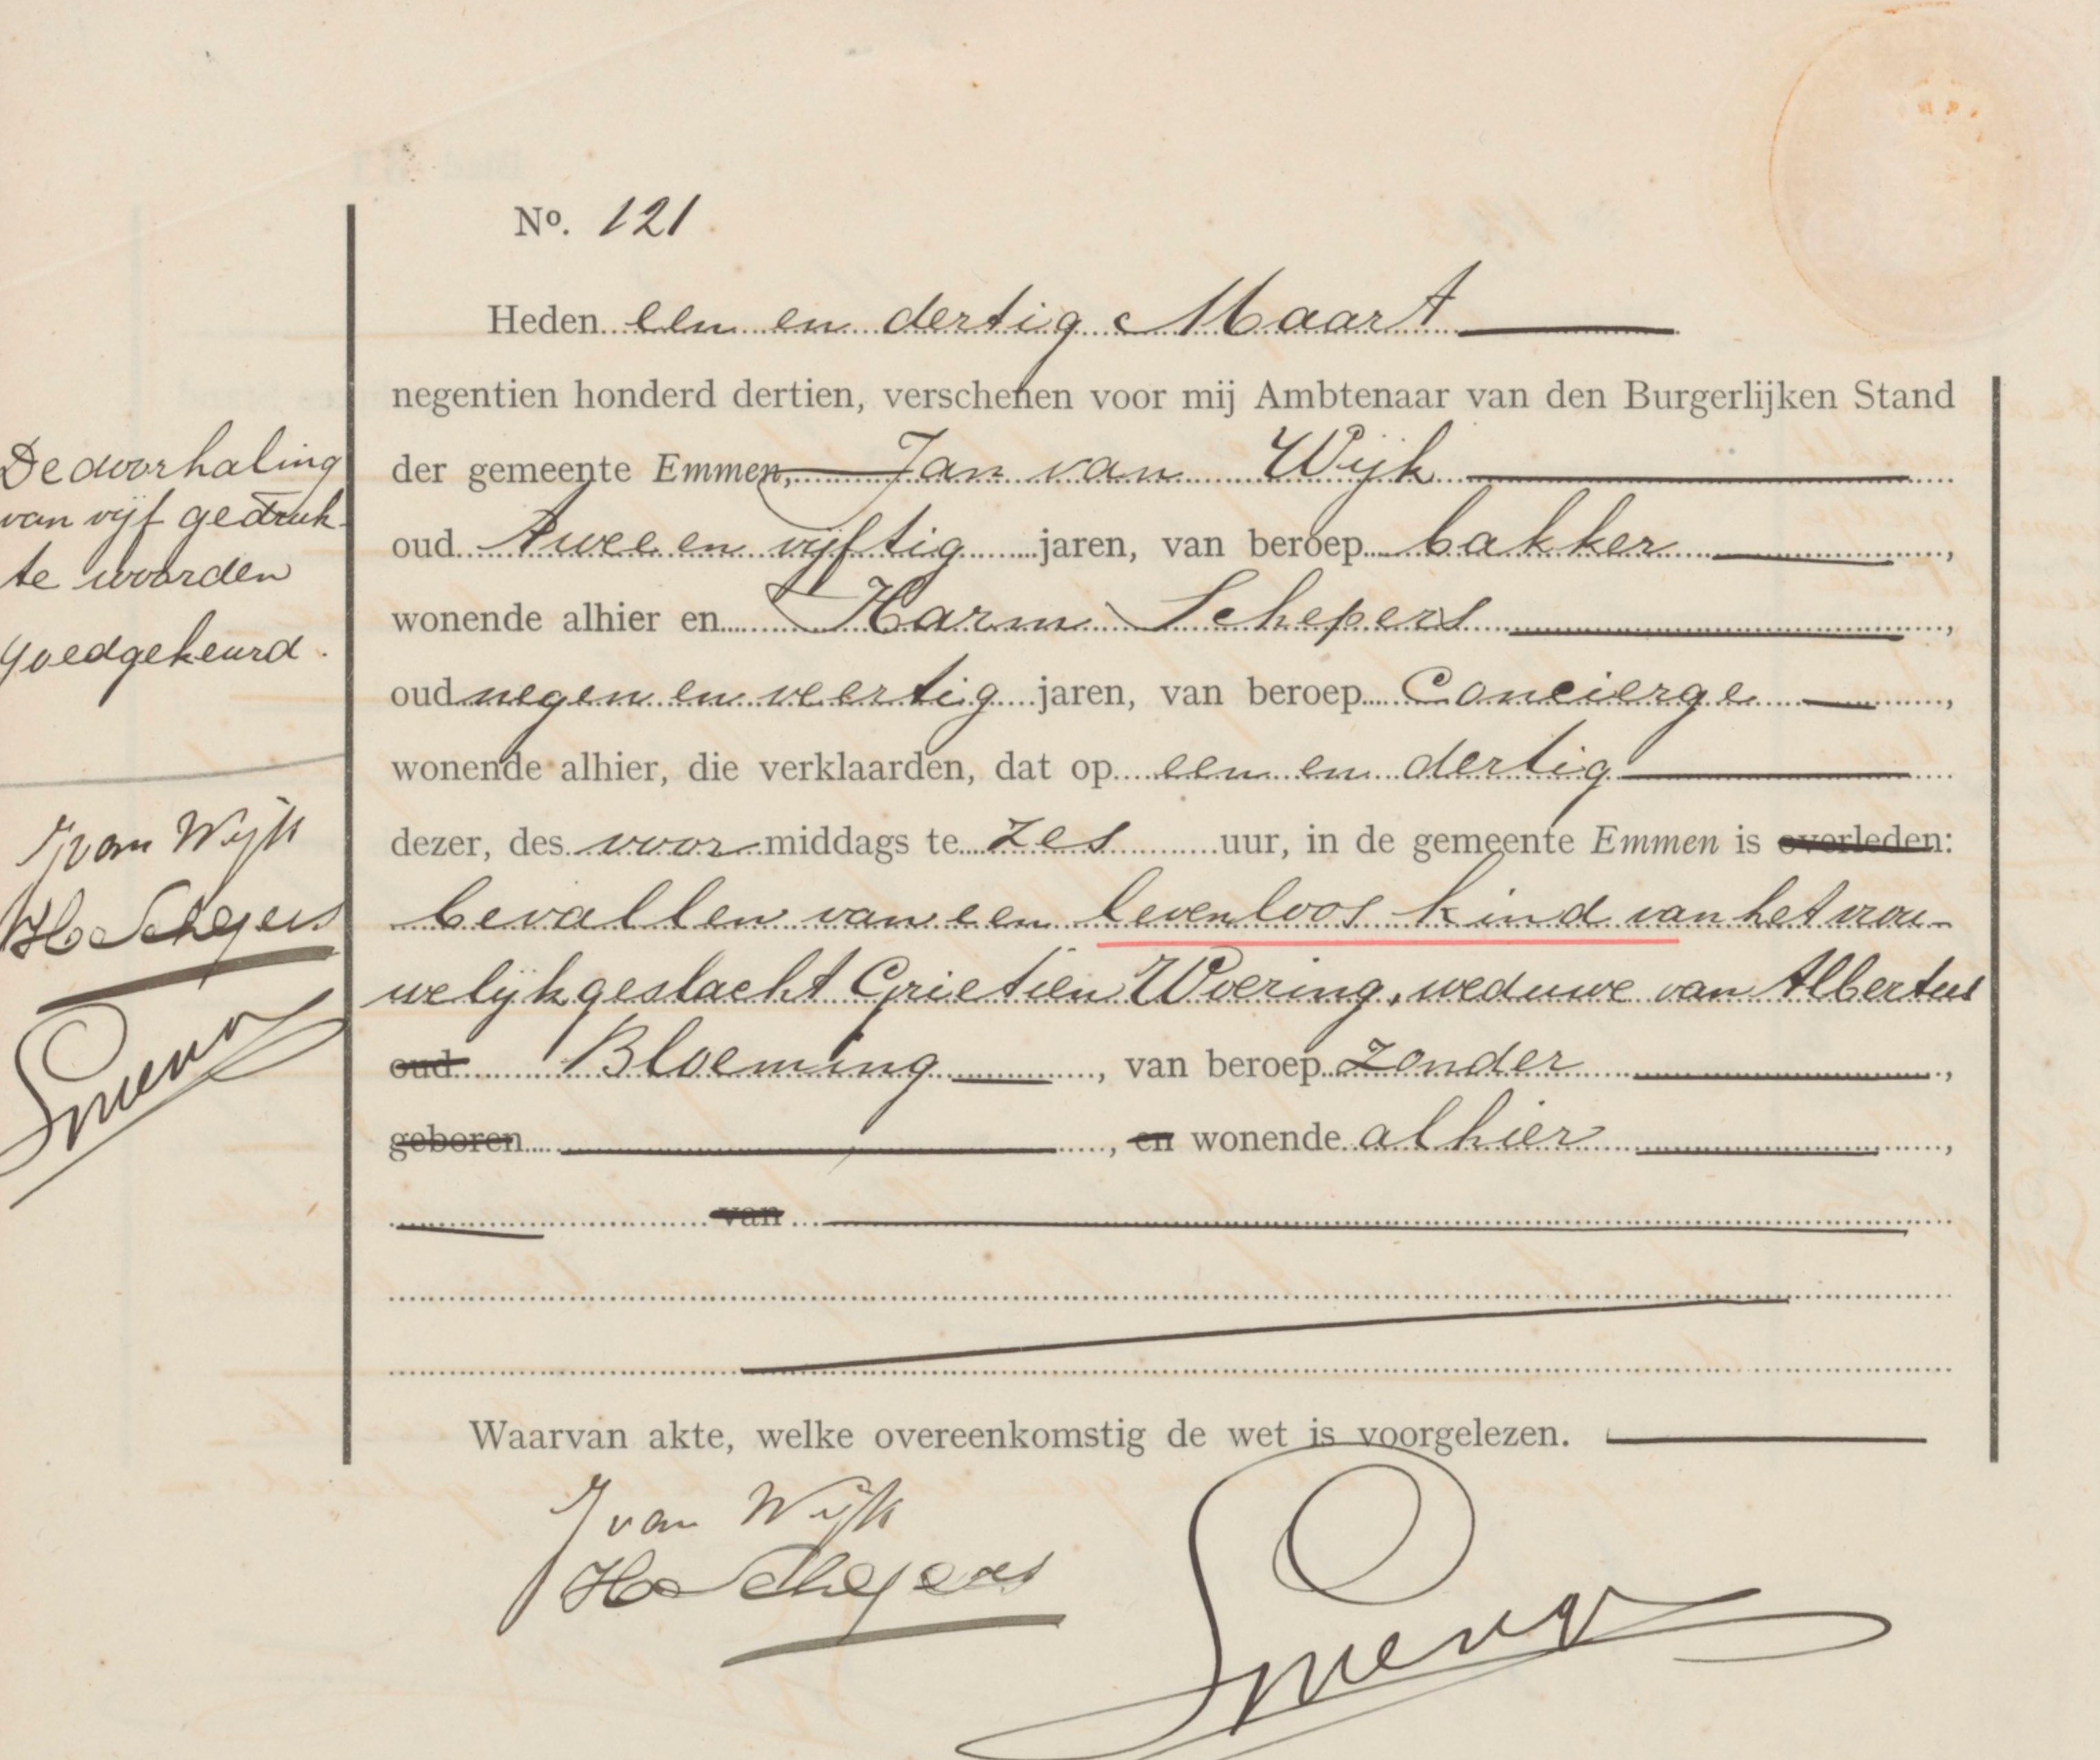 No. 121
Heden een en dertig Maart
negentien honderd dertien, verschenen voor mij Ambtenaar van den Burgerlijken Stand
der gemeente Emmen, Jan van Wijk
oud twee en vijftig jaren, van beroep bakker,
wonende alhier en Harm Schepers,
oud negen en veertig jaren, van beroep Concierge,
wonende alhier, die verklaarden, dat op een en dertig
dezer, des voormiddags te zes uur, in de gemeente Emmen is overleden:
bevallen van een levenloos kind van het vrou-
welijk geslacht Grietien Woering, weduwe van Albertus
oud Bloeming, van beroep zonder,
geboren, en wonende alhier,
van
Waarvan akte, welke overeenkomstig de wet is voorgelezen.
J van Wijk
H Schepers
De doorhaling
van vijf gedruk-
te woorden
goedgekeurd.
J van Wijk
H Schepers